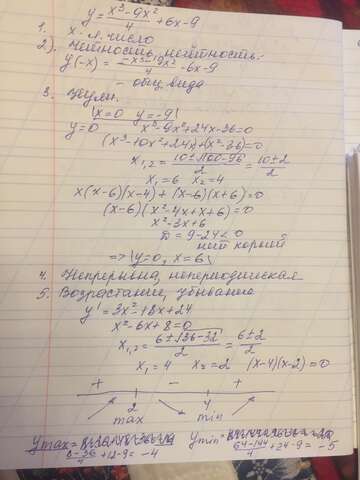 y = (x³-9x²)/4 + 6x-9
1. x - л. число
2). Четность, нечётность:
y(-x) = (-x³-9x²)/4 - 6x-9
- общ. вида
3. Нули.
\x=0 y=-9\
y=0 x³-9x²+24x-36=0
(x³-10x²+24x)+(x²-36)=0
x₁,₂ = (10±√100-96)/2 = (10±2)/2
x₁=6 x₂=4
x(x-6)(x-4)+(x-6)(x+6)=0
(x-6)(x²-4x+x+6)=0
x²-3x+6
D=9-24<0
нет корней
=> \y=0, x=6\
4. Непрерывна, непериодическая
5. Возрастание, убывание
y' = 3x²-18x+24
x²-6x+8=0
x₁,₂ = (6±√36-32)/2 = (6±2)/2
x₁=4 x₂=2 (x-4)(x-2)=0
+ - +
2 4
max min
ymax= (8-36)/4+12-9=-4 ymin= (64-144)/4+24-9=-5